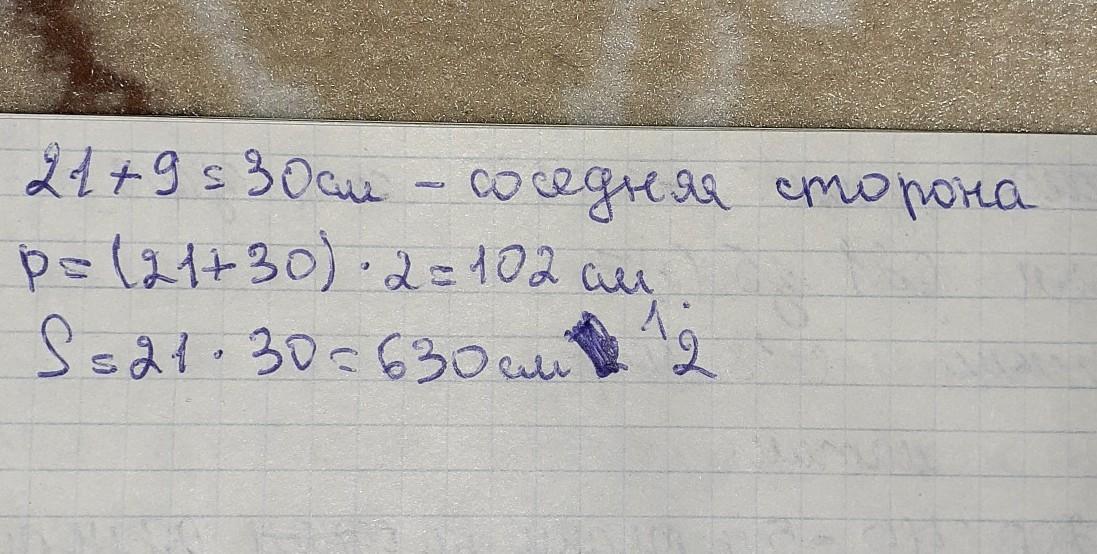 21+9=30см - соседняя сторона
P=(21+30)·2=102 см
S=21·30=630см ^2